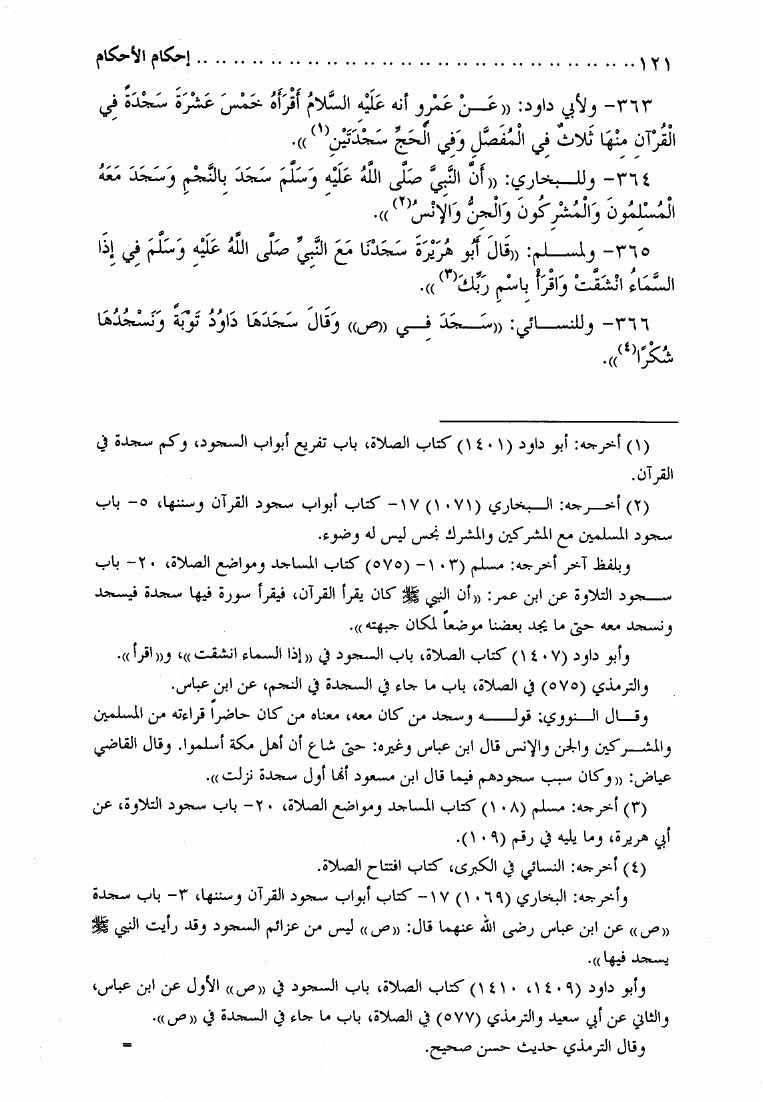 ١٢١ .......................................................... إحكام الأحكام
٣٦٣- ولأبي داود: «عَـــنْ عَمْرٍو أنه عَلَيْهِ السَّلامُ أَقْرَأَهُ خَمْسَ عَشْرَةَ سَجْدَةً فِي
الْقُرْآنِ مِنْهَا ثَلاثٌ فِي الْمُفَصَّلِ وَفِي الْحَجِّ سَجْدَتَيْنِ(١)».
٣٦٤- وللـــبخاري: «أَنَّ النَّبِيَّ صَلَّى اللَّهُ عَلَيْهِ وَسَلَّمَ سَجَدَ بِالنَّجْمِ وَسَجَدَ مَعَهُ
الْمُسْلِمُونَ وَالْمُشْرِكُونَ وَالْجِنُّ وَالإِنْسُ(٢)».
٣٦٥- ولمســـلم: «قَالَ أَبُو هُرَيْرَةَ سَجَدْنَا مَعَ النَّبِيِّ صَلَّى اللَّهُ عَلَيْهِ وَسَلَّمَ فِي إِذَا
السَّمَاءُ انْشَقَّتْ وَاقْرَأْ بِاسْمِ رَبِّكَ(٣)».
٣٦٦- وللنســـائي: «ســـجَدَ فـــي «ص» وَقَالَ سَجَدَهَا دَاوُدُ تَوْبَةً وَنَسْجُدُهَا
شُكْرًا(٤)».
(١) أخرجه: أبو داود (١٤٠١) كتاب الصلاة، باب تفريع أبواب السجود، وكم سجدة في
القرآن.
(٢) أخـــرجه: الـــبخاري (١٠٧١) ١٧- كتاب أبواب سجود القرآن وسننها، ٥- باب
سجود المسلمين مع المشركين والمشرك نجس ليس له وضوء.
وبلفظ آخر أخرجه: مسلم (١٠٣- (٥٧٥) كتاب المساجد ومواضع الصلاة، ٢٠- باب
ســـجود التلاوة عن ابن عمر: «أن النبي ﷺ كان يقرأ القرآن، فيقرأ سورة فيها سجدة فيسجد
ونسجد معه حتى ما يجد بعضنا موضعاً لمكان جبهته».
وأبو داود (١٤٠٧) كتاب الصلاة، باب السجود في «إذا السماء انشقت»، و«اقرأ».
والترمذي (٥٧٥) في الصلاة، باب ما جاء في السجدة في النجم، عن ابن عباس.
وقـــال الـــنووي: قولـــه وسجد من كان معه، معناه من كان حاضراً قراءته من المسلمين
والمشـــركين والجن والإنس قال ابن عباس وغيره: حتى شاع أن أهل مكة أسلموا. وقال القاضي
عياض: «وكان سبب سجودهم فيما قال ابن مسعود أنها أول سجدة نزلت».
(٣) أخرجه: مسلم (١٠٨) كتاب المساجد ومواضع الصلاة، ٢٠- باب سجود التلاوة، عن
أبي هريرة، وما يليه في رقم (١٠٩).
(٤) أخرجه: النسائي في الكبرى، كتاب افتتاح الصلاة.
وأخرجه: البخاري (١٠٦٩) ١٧- كتاب أبواب سجود القرآن وسننها، ٣- باب سجدة
«ص» عن ابن عباس رضى الله عنهما قال: «ص» ليس من عزائم السجود وقد رأيت النبي ﷺ
يسجد فيها».
وأبو داود (١٤٠٩، ١٤١٠) كتاب الصلاة، باب السجود في «ص» الأول عن ابن عباس،
والثاني عن أبي سعيد والترمذي (٥٧٧) في الصلاة، باب ما جاء في السجدة في «ص».
وقال الترمذي حديث حسن صحيح. =